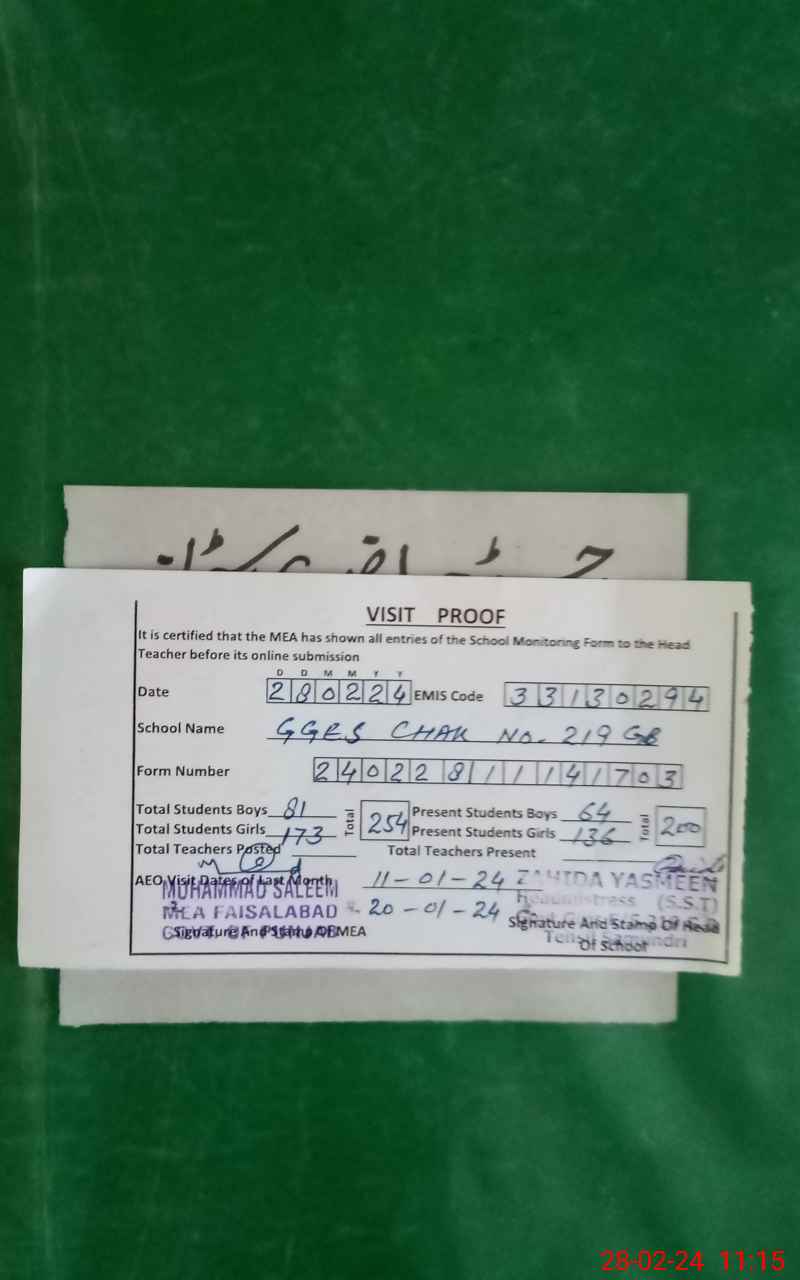 VISIT PROOF
It is certified that the MEA has shown all entries of the School Monitoring Form to the Head
Teacher before its online submission
D D M M Y Y
Date 280224 EMIS Code 33130294
School Name GGES CHAK NO. 219 GB
Form Number 240228111141703
Total Students Boys 81 Total 254 Present Students Boys 64 Total 200
Total Students Girls 173 Present Students Girls 136
Total Teachers Posted Total Teachers Present
AEO Visit Dates of Last Month 11-01-24 ZAHIDA YASMEEN
MUHAMMAD SALEEM Headmistress (S.S.T)
MEA FAISALABAD 20-01-24
Signature And Stamp Of MEA Signature And Stamp Of Head
Of School
28-02-24 11:15